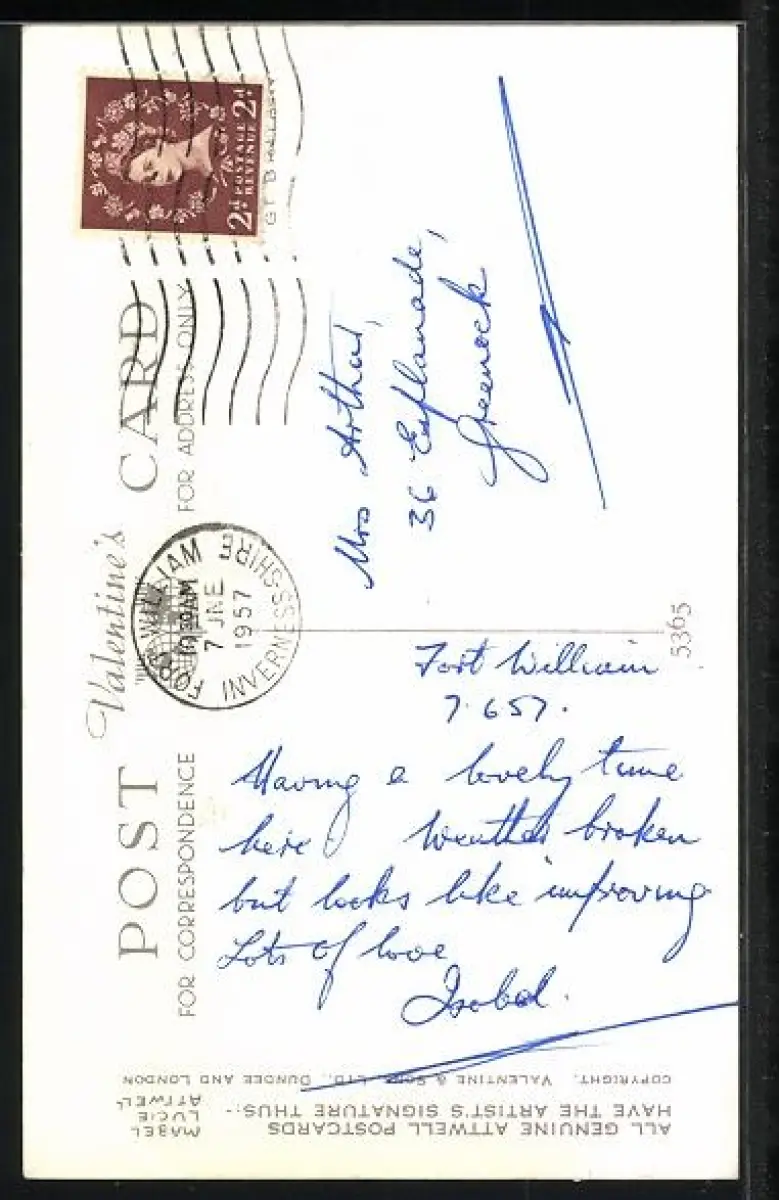 POST CARD
Valentine's
FOR CORRESPONDENCE
FOR ADDRESS ONLY
2d POSTAGE REVENUE 2d
FORT WILLIAM
10 30 AM
7 JNE
1957
INVERNESS-SHIRE
Fort William
7.657.
Having a lovely time
here Weather broken
but looks like improving
Lots of love
Isobel.
Mrs Arthur,
36 Esplanade,
Greenock
5365
ALL GENUINE ATTWELL POSTCARDS
HAVE THE ARTIST'S SIGNATURE THUS:-
MABEL
LUCIE
ATTWELL
COPYRIGHT. VALENTINE & SONS, LTD., DUNDEE AND LONDON